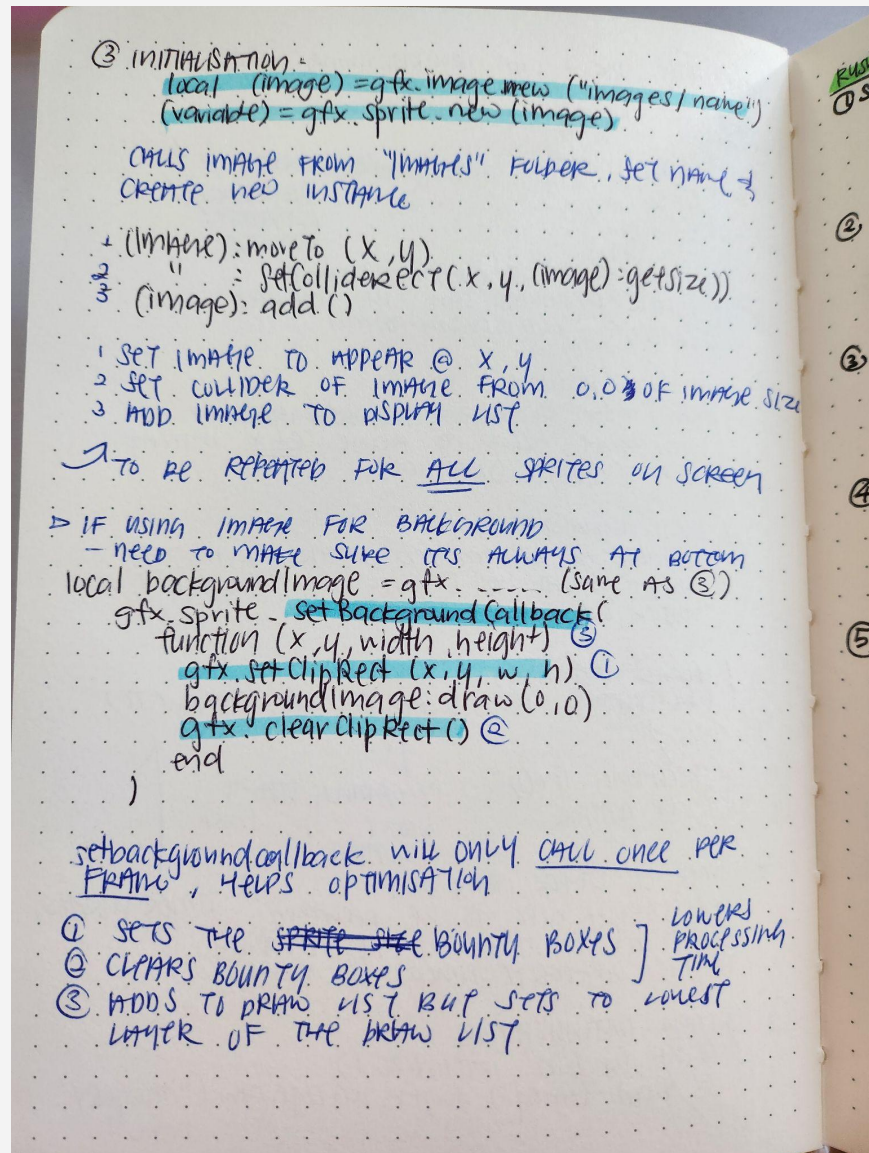 ③ INITIALISATION -
local (image) = gfx.image.new ("images/name")
(variable) = gfx.sprite.new (image)
CALLS IMAGE FROM "IMAGES" FOLDER, SET NAME &
CREATE NEW INSTANCE
1 (IMAGE):moveTo (X,Y)
2 " : setCollideRect(x, y, (image):getSize())
3 (image): add ()
1 SET IMAGE TO APPEAR @ X, Y
2 SET COLLIDER OF IMAGE FROM 0,0 OF IMAGE SIZE
3 ADD IMAGE TO DISPLAY LIST
TO BE REPEATED FOR ALL SPRITES ON SCREEN
▷ IF USING IMAGE FOR BACKGROUND
- NEED TO MAKE SURE IT'S ALWAYS AT BOTTOM
local backgroundImage = gfx. ...... (SAME AS ③)
gfx.sprite.setBackgroundCallback(
function (x, y, width, height) ③
gfx.setClipRect (x, y, w, h) ①
backgroundImage:draw(0,0)
gfx.clearClipRect() ②
end
)
setbackgroundcallback will ONLY CALL ONCE PER
FRAME, HELPS OPTIMISATION
① SETS THE SPRITE SIZE BOUNTY BOXES ] LOWERS
PROCESSING
TIME
② CLEARS BOUNTY BOXES
③ ADDS TO DRAW LIST BUT SETS TO LOWEST
LAYER OF THE DRAW LIST
① S
②
③
④
⑤